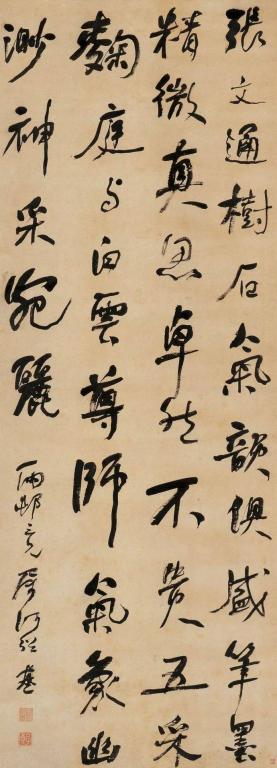 張文通樹石氣韻俱盛筆墨
精微真思卓然不貴五采
麴庭与白雲尊師氣象幽
渺神采宛麗
雨邨兄屬何紹基